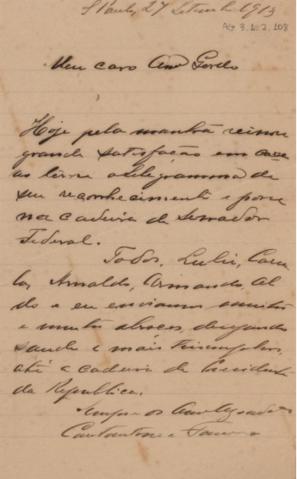 S Paulo, 27 Setembro 1913
Meu caro Gordo
Hoje pela manhã reinou
grande satisfação em casa
ao lêr o telegramma de
seu reconhecimento e posse
na cadeira de Senador
Federal.
Todos, Lulu,
Arnaldo, Armando, Al
do e eu enviamos muitos
e muitos abraços, desejando
saude e mais triumphos,
até a cadeira de Presidente
da Republica.
Sempre os